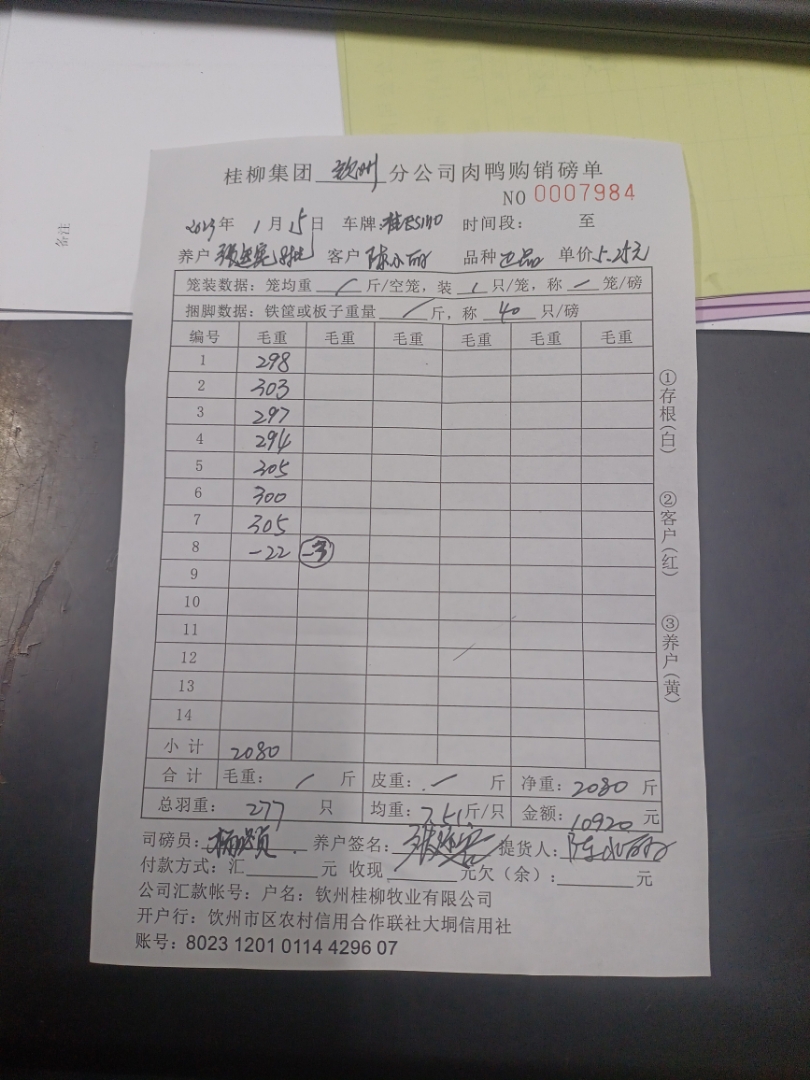 备注
桂柳集团 钦州 分公司肉鸭购销磅单
NO 0007984
2023年 1月 15日 车牌: 时间段: 至
养户 客户 陈小丽 品种 正品 单价 5.25元
笼装数据: 笼均重 / 斤/空笼, 装 / 只/笼, 称 一 笼/磅
捆脚数据: 铁筐或板子重量 / 斤, 称 40 只/磅
编号 毛重 毛重 毛重 毛重 毛重 毛重
1 298
2 303
3 297
4 294
5 305
6 300
7 305
8 -22 -3
9
10
11
12
13
14
小计 2080
合计 毛重: / 斤 皮重: 一 斤 净重: 2080 斤
总羽重: 277 只 均重: 7.51斤/只 金额: 10920 元
司磅员: 养户签名: 提货人: 陈小丽
付款方式: 汇 元 收现 元欠(余): 元
公司汇款帐号: 户名: 钦州桂柳牧业有限公司
开户行: 钦州市区农村信用合作联社大垌信用社
账号: 8023 1201 0114 4296 07
①存根(白)
②客户(红)
③养户(黄)